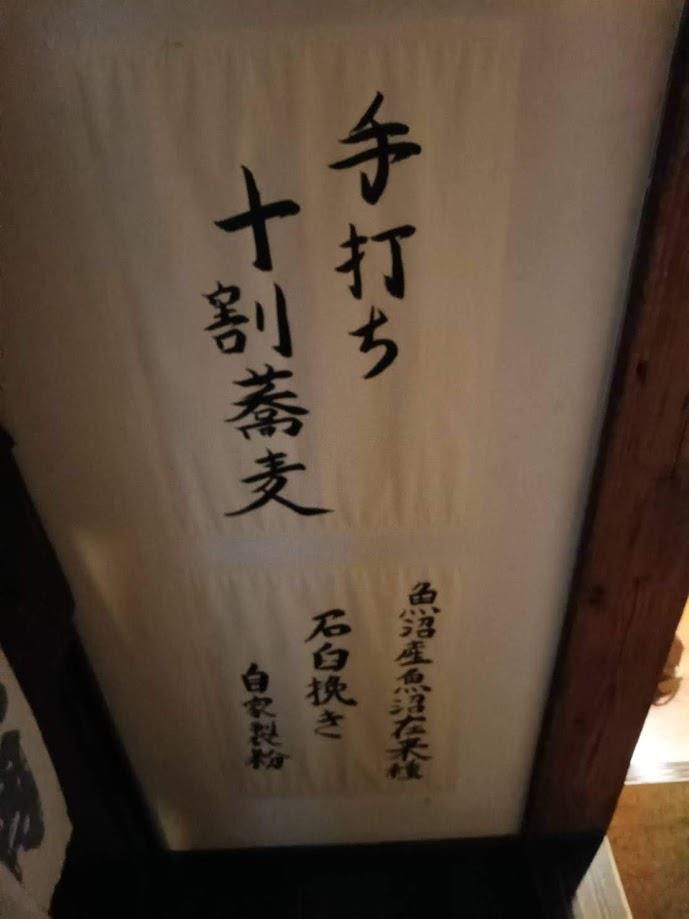 手打ち
十割蕎麦
魚沼産魚沼在来種
石臼挽き
自家製粉